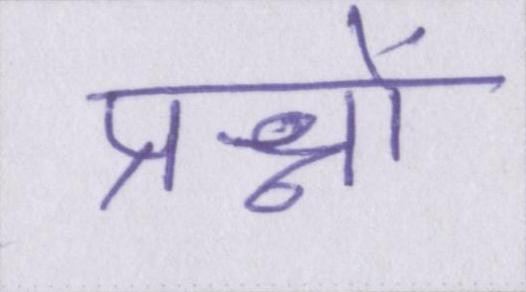 प्रश्नों